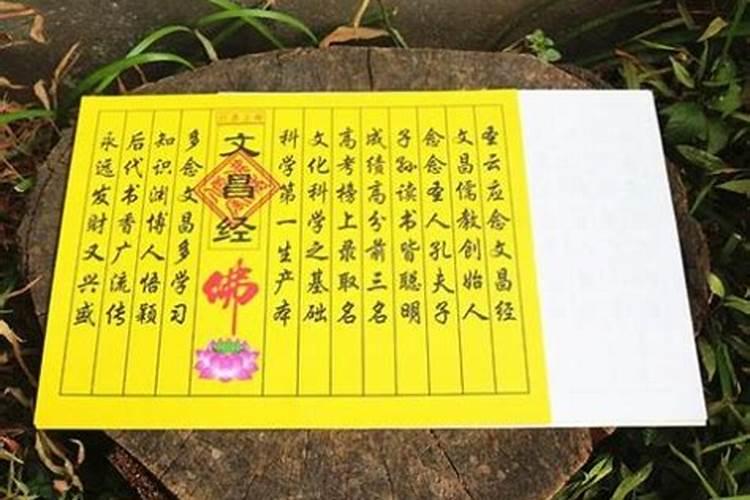 圣云应念文昌经
文昌儒教创始人
念念圣人孔夫子
子孙读书皆聪明
成绩高分前三名
高考榜上录取名
文化科学之基础
科学第一生产本
文昌经
佛
多念文昌多学习
知识渊博人悟颖
后代书香广流传
永远发财又兴盛